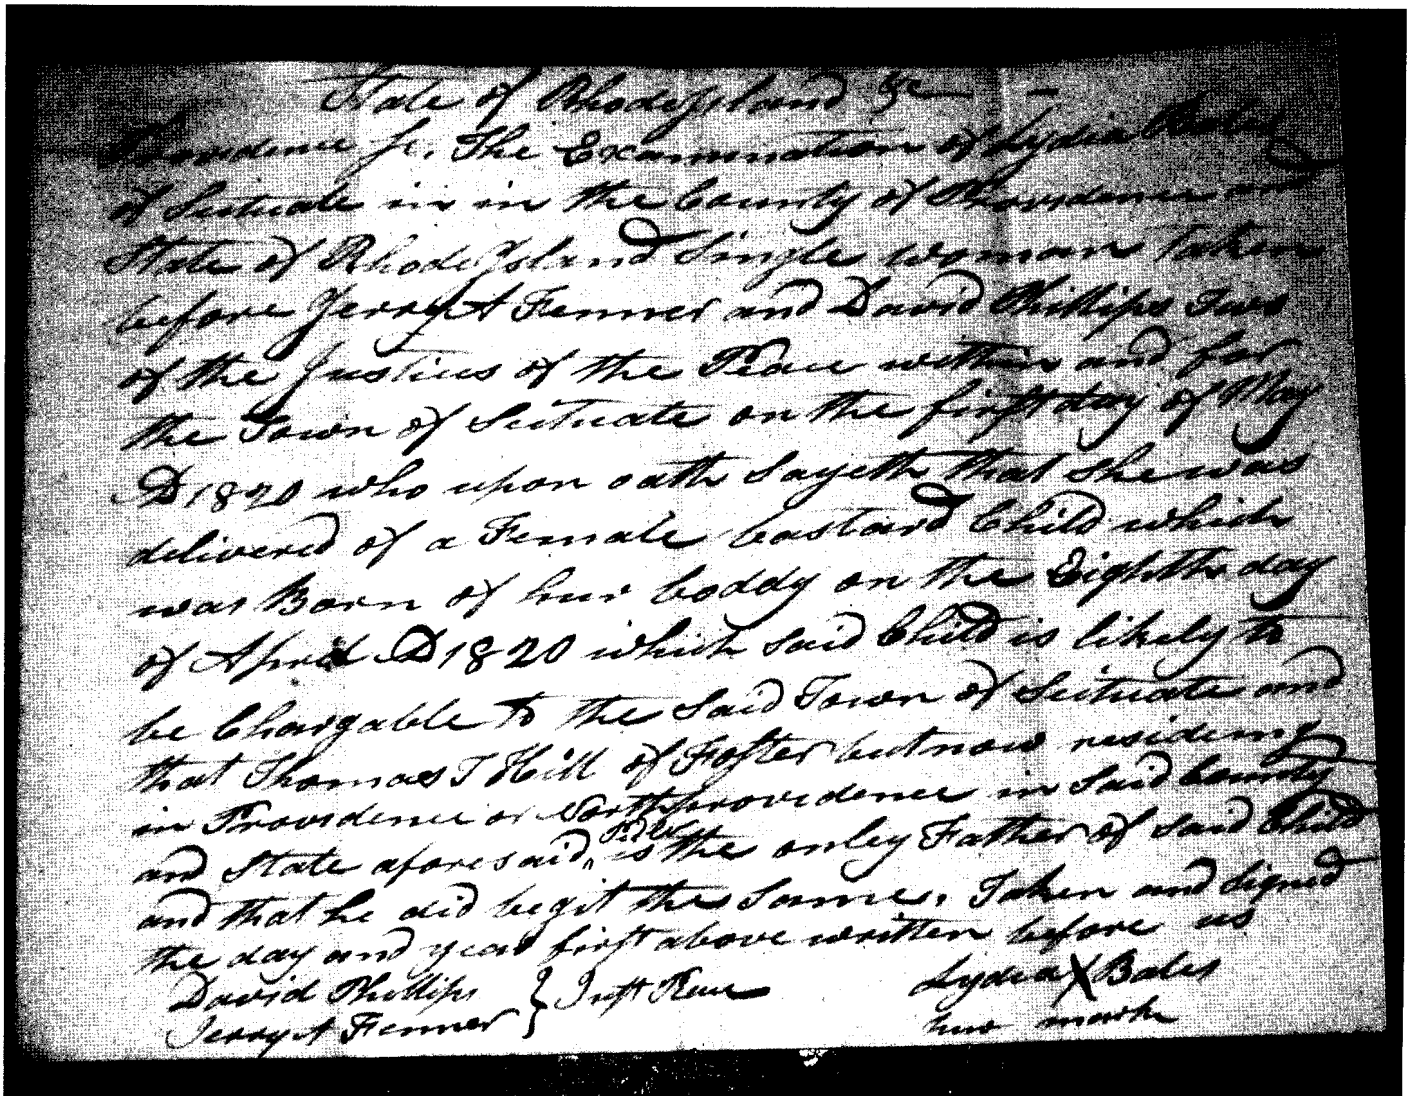 State of Rhode Island &c
Providence Sc. The Examination of Lydia Bates
of Scituate in in the County of Providence and
State of Rhode Island Single woman taken
before Jerry A Fenner and David Phillips Two
of the Justices of the Peace within and for
the Town of Scituate on the first day of May
AD 1820 who upon oath Sayeth that she was
delivered of a Female bastard Child which
was Born of hur boddy on the Eighth day
of April AD 1820 which said Child is likely to
be Chargable to the Said Town of Scituate and
that Thomas T Hill of Foster but now residing
in Providence or Northprovidence in Said County
and State aforesaid, is the onley Father of said Child
and that he did begit the Same. Taken and Signed
the day and year first above written before us
David Phillips } Just Peace Lydia X Bates
Jerry A Fenner hur mark